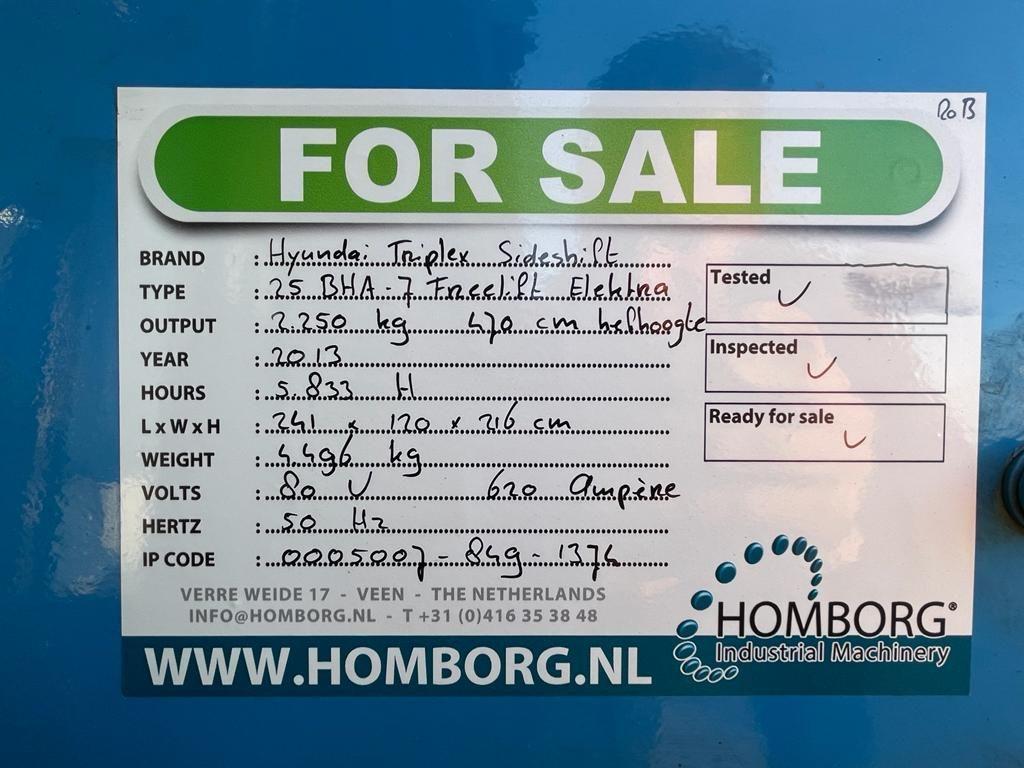 RoB
FOR SALE
BRAND : Hyundai Triplex Sideshift
TYPE : 25 BHA-7 Freelift Elektra
OUTPUT : 2.250 kg 470 cm hefhoogte
YEAR : 2013
HOURS : 5.833 H
L x W x H : 241 x 120 x 216 cm
WEIGHT : 4.496 kg
VOLTS : 80 V 620 Ampère
HERTZ : 50 Hz
IP CODE : 0005007-849-1374
Tested
Inspected
Ready for sale
VERRE WEIDE 17 - VEEN - THE NETHERLANDS
INFO@HOMBORG.NL - T +31 (0)416 35 38 48
WWW.HOMBORG.NL
HOMBORG®
Industrial Machinery